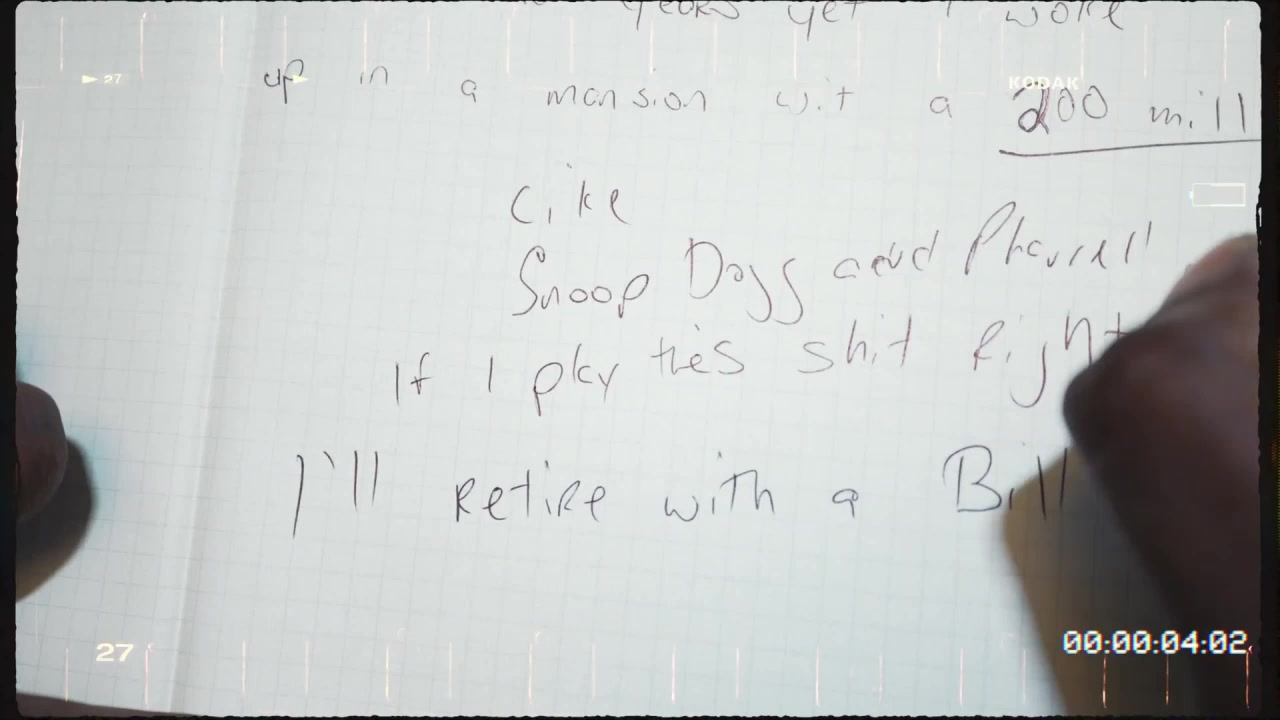 years yet I woke
▶ 27
up in a mansion wit a 200 mill
KODAK
Like
Snoop Dogg and Pharrell
If I play this shit Right
I'll retire with a Bill
27
00:00:04:02